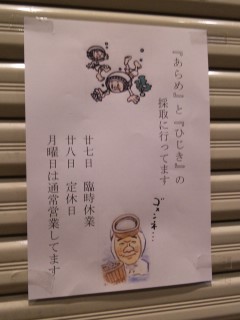 『あらめ』と『ひじき』の
採取に行ってます
廿七日　臨時休業
廿八日　定休日
月曜日は通常営業してます